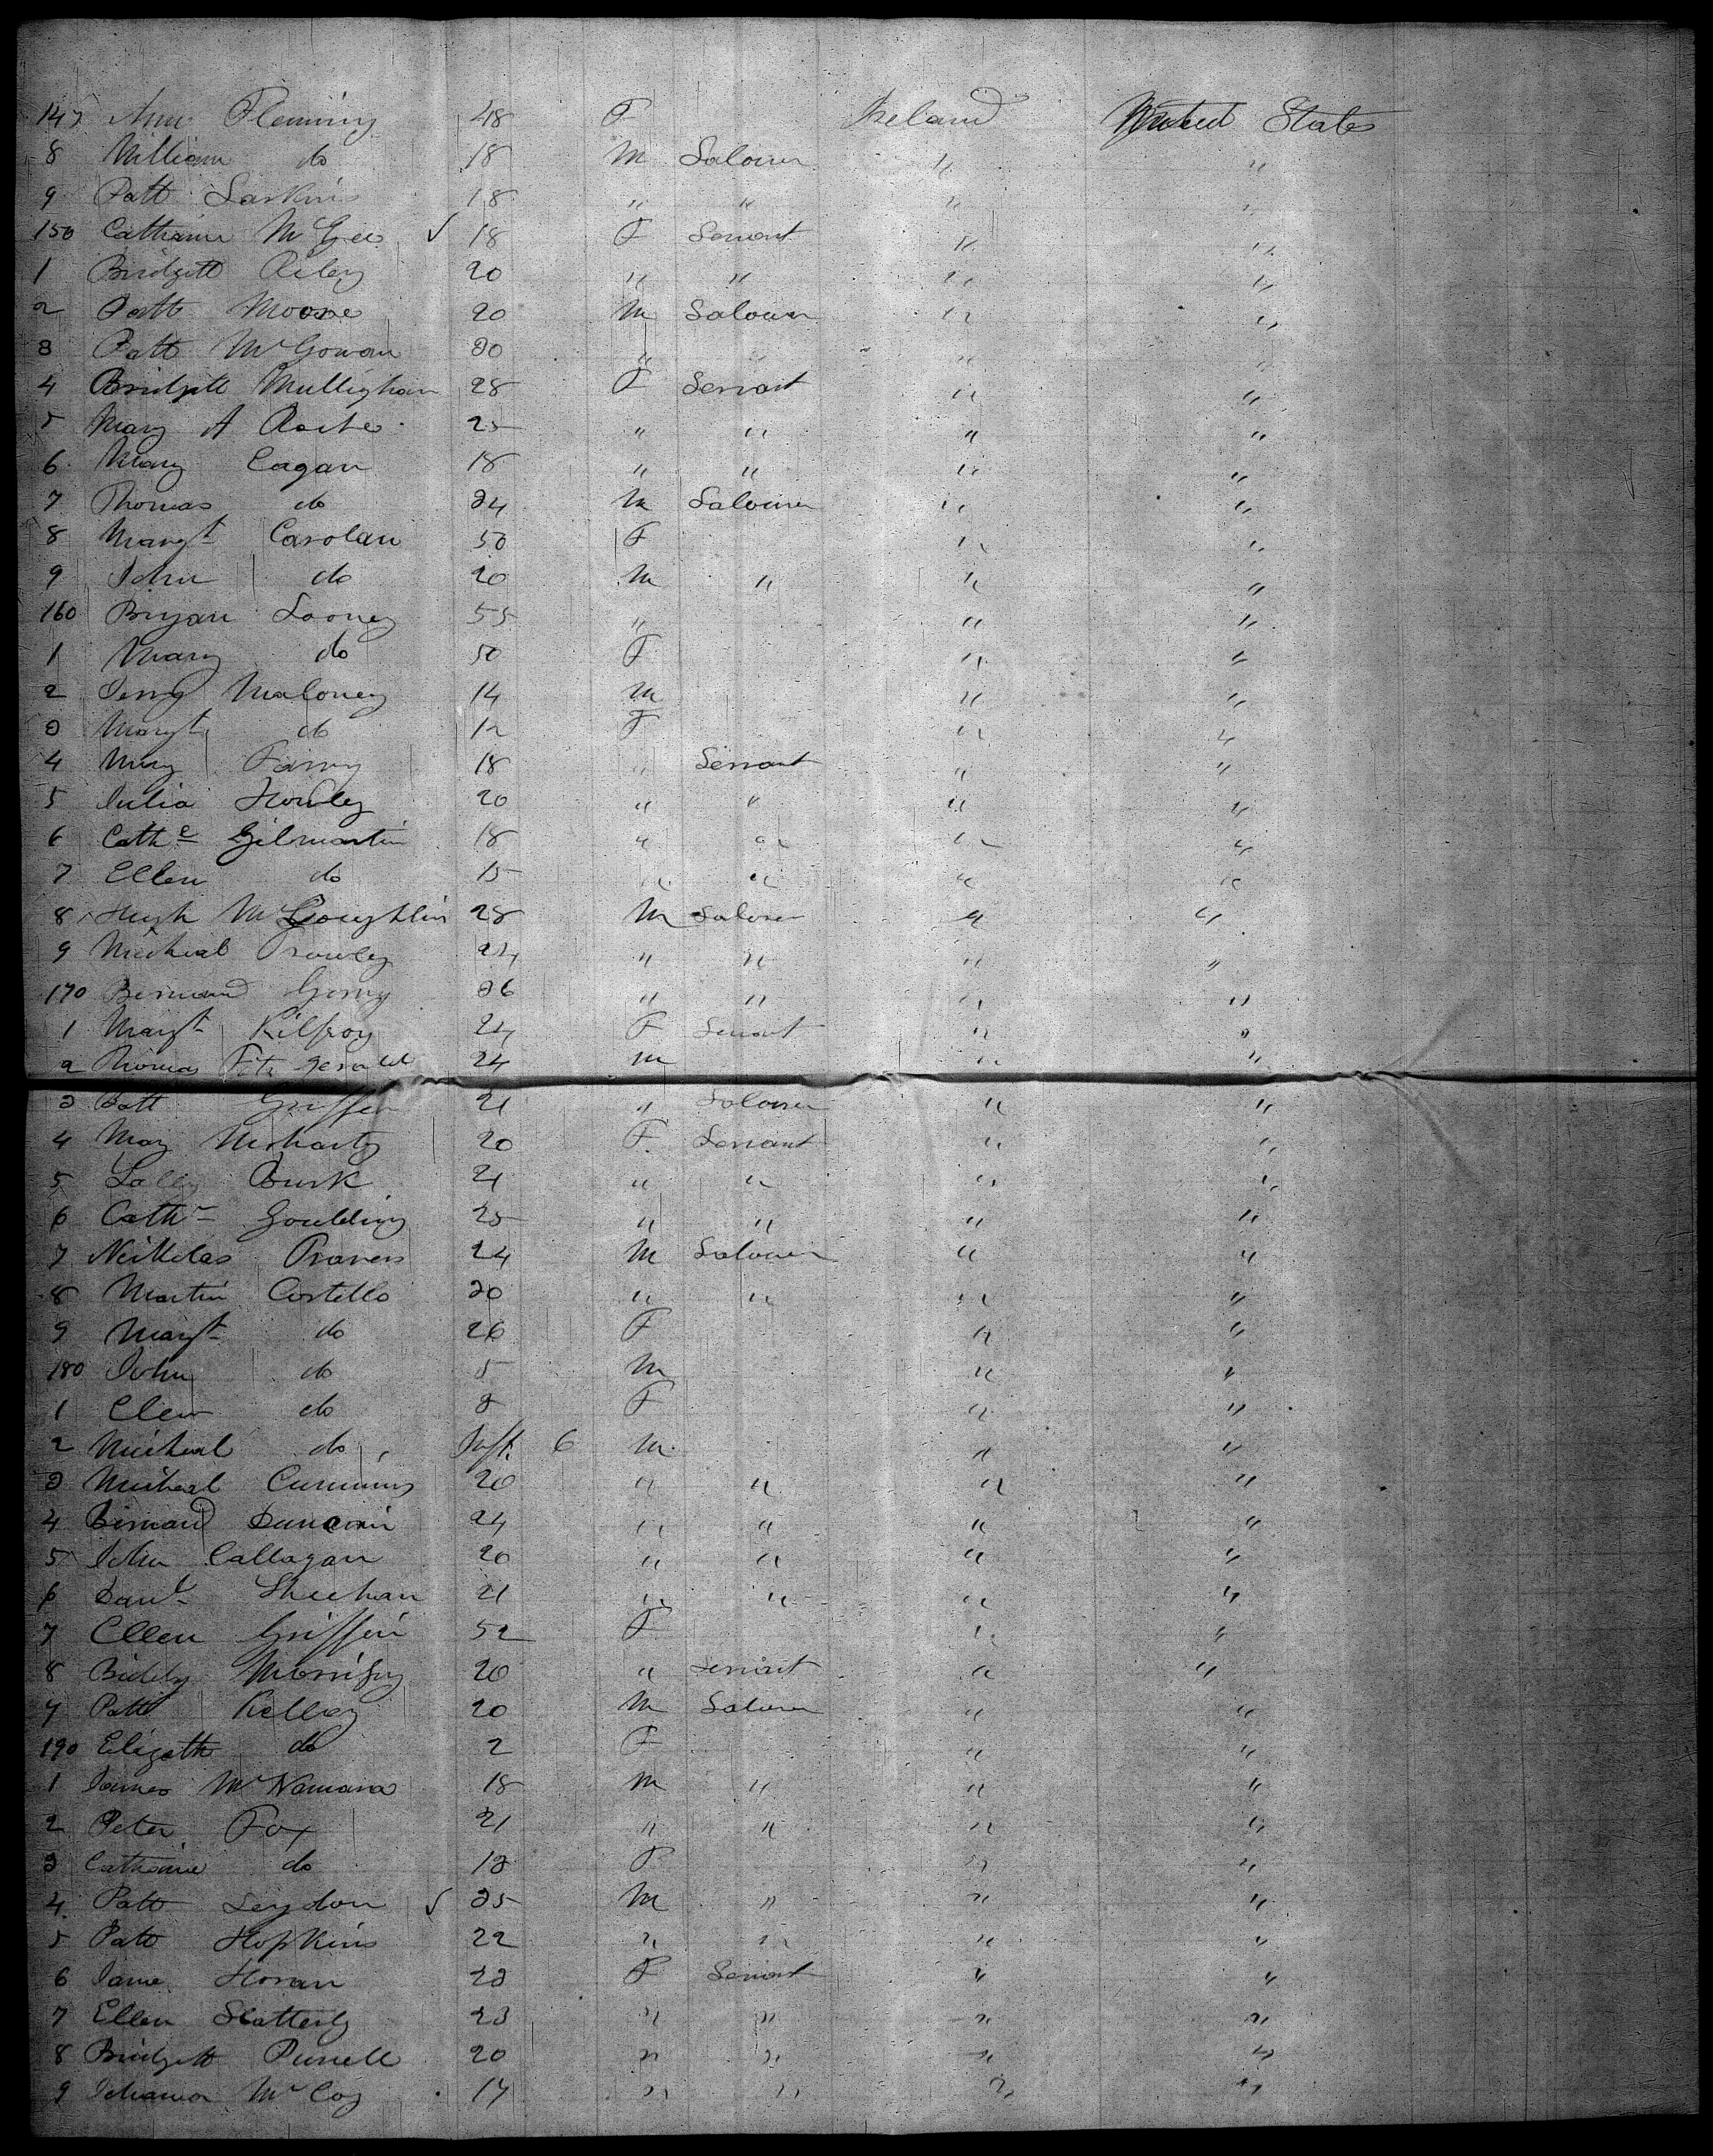 147 Ann Fleming 48 F Ireland United States
8 William do 18 M Labourer " "
9 Patt Larkins 18 " " " "
150 Catharine McGee ✓ 18 F Servant " "
1 Bridgett Riley 20 " " " "
2 Patt Moore 20 M Labourer " "
3 Patt McGowan 30 " " " "
4 Bridgett Mullighan 28 F Servant " "
5 Mary A 25 " " " "
6 Mary Eagan 18 " " " "
7 Thomas do 24 M Labourer " "
8 Margt Carolan 50 F " "
9 John do 20 M " " "
160 Bryan Looney 55 " " "
1 Mary do 50 F " "
2 Jerry Maloney 14 M " "
3 Margt do 12 F " "
4 Mary 18 " Servant " "
5 Julia Howley 20 " " " "
6 Cathe Gilmartin 18 " " " "
7 Ellen do 15 " " " "
8 Hugh McLoughlin 28 M Labourer " "
9 Micheal 24 " " " "
170 Bernard 26 " " " "
1 Margt Kilfroy 24 F Servant " "
2 Thomas Fitz gerald 24 M " "
3 Patt Griffin 21 " Labourer " "
4 Mary Moriharty 20 F Servant " "
5 Burk 21 " " " "
6 Cathn Goulding 25 " " " "
7 Nickolas Travers 24 M Labourer " "
8 Martin Costello 30 " " " "
9 Margt do 26 F " "
180 John do 5 M " "
1 Ellen do 3 F " "
2 Micheal do Inft. 6 M " "
3 Micheal Cummins 20 " " " "
4 Bernard 24 " " " "
5 John Callagan 20 " " " "
6 Danl Sheehan 21 " " " "
7 Ellen Griffin 52 F " "
8 Biddy 20 " Servant " "
9 Patt Kelley 20 M Labourer " "
190 Elizath do 2 F " "
1 James McNamara 18 M " " "
2 Peter Fox 21 " " " "
3 Catharine do 13 F " "
4 Patt Leydon ✓ 35 M " " "
5 Patt Hopkins 22 " " " "
6 Jane Horan 23 F Servant " "
7 Ellen Slatterly 23 " " " "
8 Bridgett Pursell 20 " " " "
9 Johanna McCoy 17 " " " "